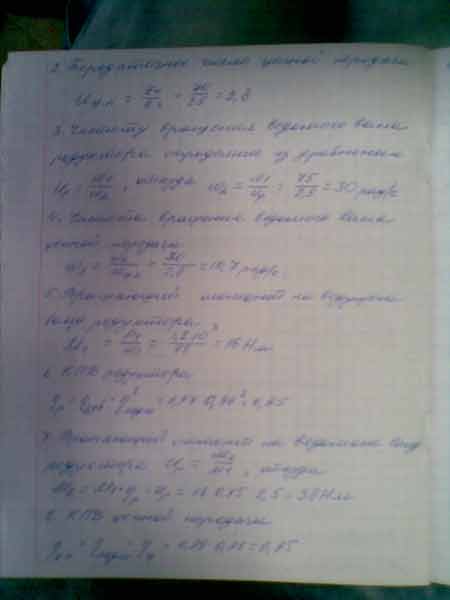 2. Передаточное число цепной передачи
U ц.п = z4/z3 = 70/25 = 2,8
3. Частоту вращения ведомого вала
редуктора определяем из уравнения
Uр = ω1/ω2, откуда ω2 = ω1/Uр = 75/2,5 = 30 рад/с
4. Частота вращения ведомого вала
цепной передачи
ω3 = ω2/ = 30/2,8 = 10,7 рад/с.
5. Вращающий момент на ведущем
валу редуктора
M1 = P1/ω1 = 1,2·10³/75 = 16 Нм
6. КПД редуктора
0,97·0,99² = 0,95
7. Вращающий момент на ведомом валу
редуктора Uр = M2/M1, откуда
M2 = M1·ηр·Uр = 16·0,95·2,5 = 38 Нм
8. КПД цепной передачи
= 0,95